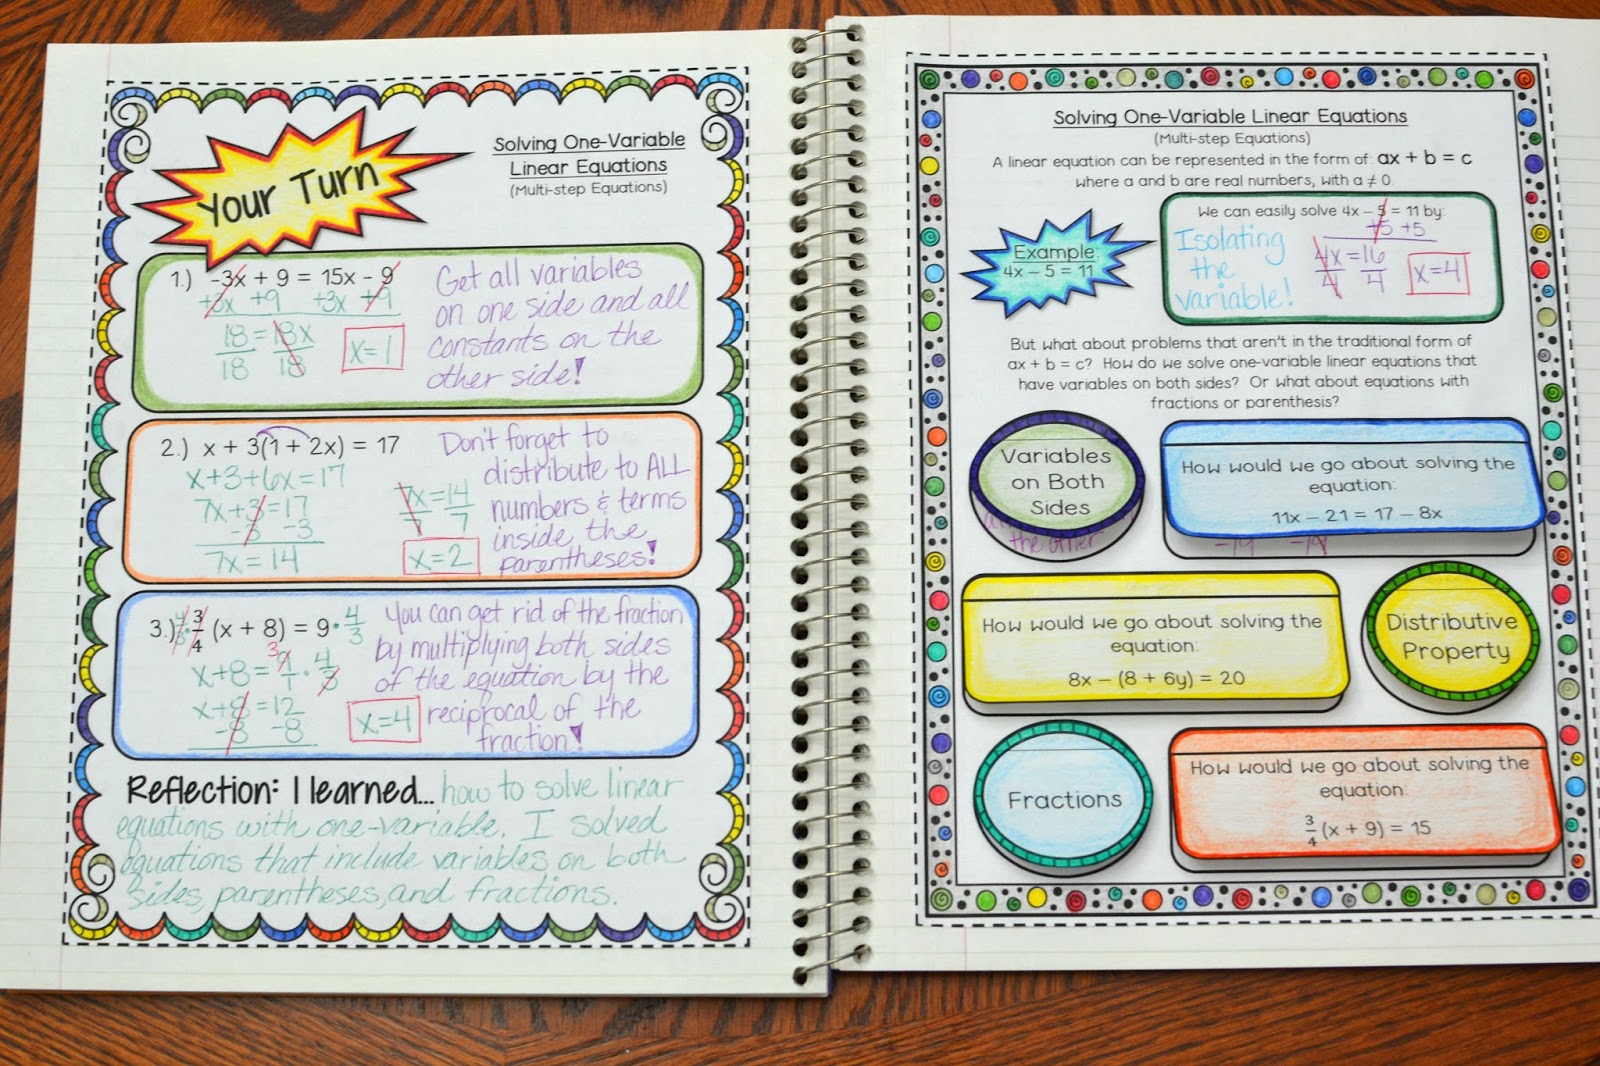 Your Turn
Solving One-Variable
Linear Equations
(Multi-step Equations)
1.) -3x + 9 = 15x - 9
+3x +9 +3x +9
18 = 18x
18 18
x=1
Get all variables
on one side and all
constants on the
other side!
2.) x + 3(1 + 2x) = 17
x+3+6x=17
7x+3=17
-3 -3
7x=14
7x=14
7 7
x=2
Don't forget to
distribute to ALL
numbers & terms
inside the
parentheses!
3.) 4/3 · 3/4 (x + 8) = 9 · 4/3
x+8= 9/1 · 4/3
3
x+8=12
-8 -8
x=4
You can get rid of the fraction
by multiplying both sides
of the equation by the
reciprocal of the
fraction!
Reflection: I learned... how to solve linear
equations with one-variable. I solved
equations that include variables on both
sides, parentheses, and fractions.
Solving One-Variable Linear Equations
(Multi-step Equations)
A linear equation can be represented in the form of: ax + b = c
where a and b are real numbers, with a ≠ 0.
Example:
4x – 5 = 11
We can easily solve 4x – 5 = 11 by:
+5 +5
Isolating
the
variable!
4x=16
4 4
x=4
But what about problems that aren't in the traditional form of
ax + b = c? How do we solve one-variable linear equations that
have variables on both sides? Or what about equations with
fractions or parenthesis?
Variables
on Both
Sides
the other
How would we go about solving the
equation:
11x – 21 = 17 – 8x
-19 -19
How would we go about solving the
equation:
8x – (8 + 6y) = 20
Distributive
Property
Fractions
How would we go about solving the
equation:
3/4 (x + 9) = 15